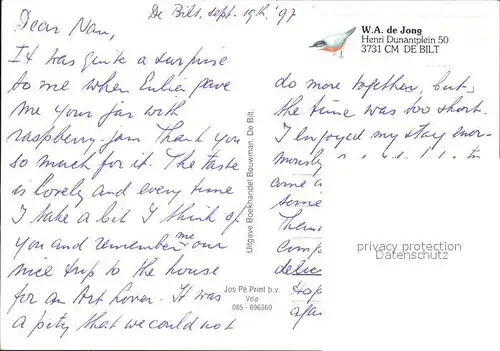 De Bilt, sept. 19th, '97
Dear Nan,
It was quite a surprise
to me when Eulie gave
me your jar with
raspberry-jam. Thank you
so much for it. The taste
is lovely and every time
I take a bit I think of
you and remember me our
nice trip to the house
for an Art Lover. It was
a pity that we could not
Uitgave Boekhandel Bouwman, De Bilt.
Jos Pé Print b.v.
Velp
085 - 696360
W.A. de Jong
Henri Dunantplein 50
3731 CM DE BILT
do more together, but
the time was too short.
I enjoyed my stay enor-
mously
come a
some
Them
comp
delic
Hop
afar
privacy protection
Datenschutz